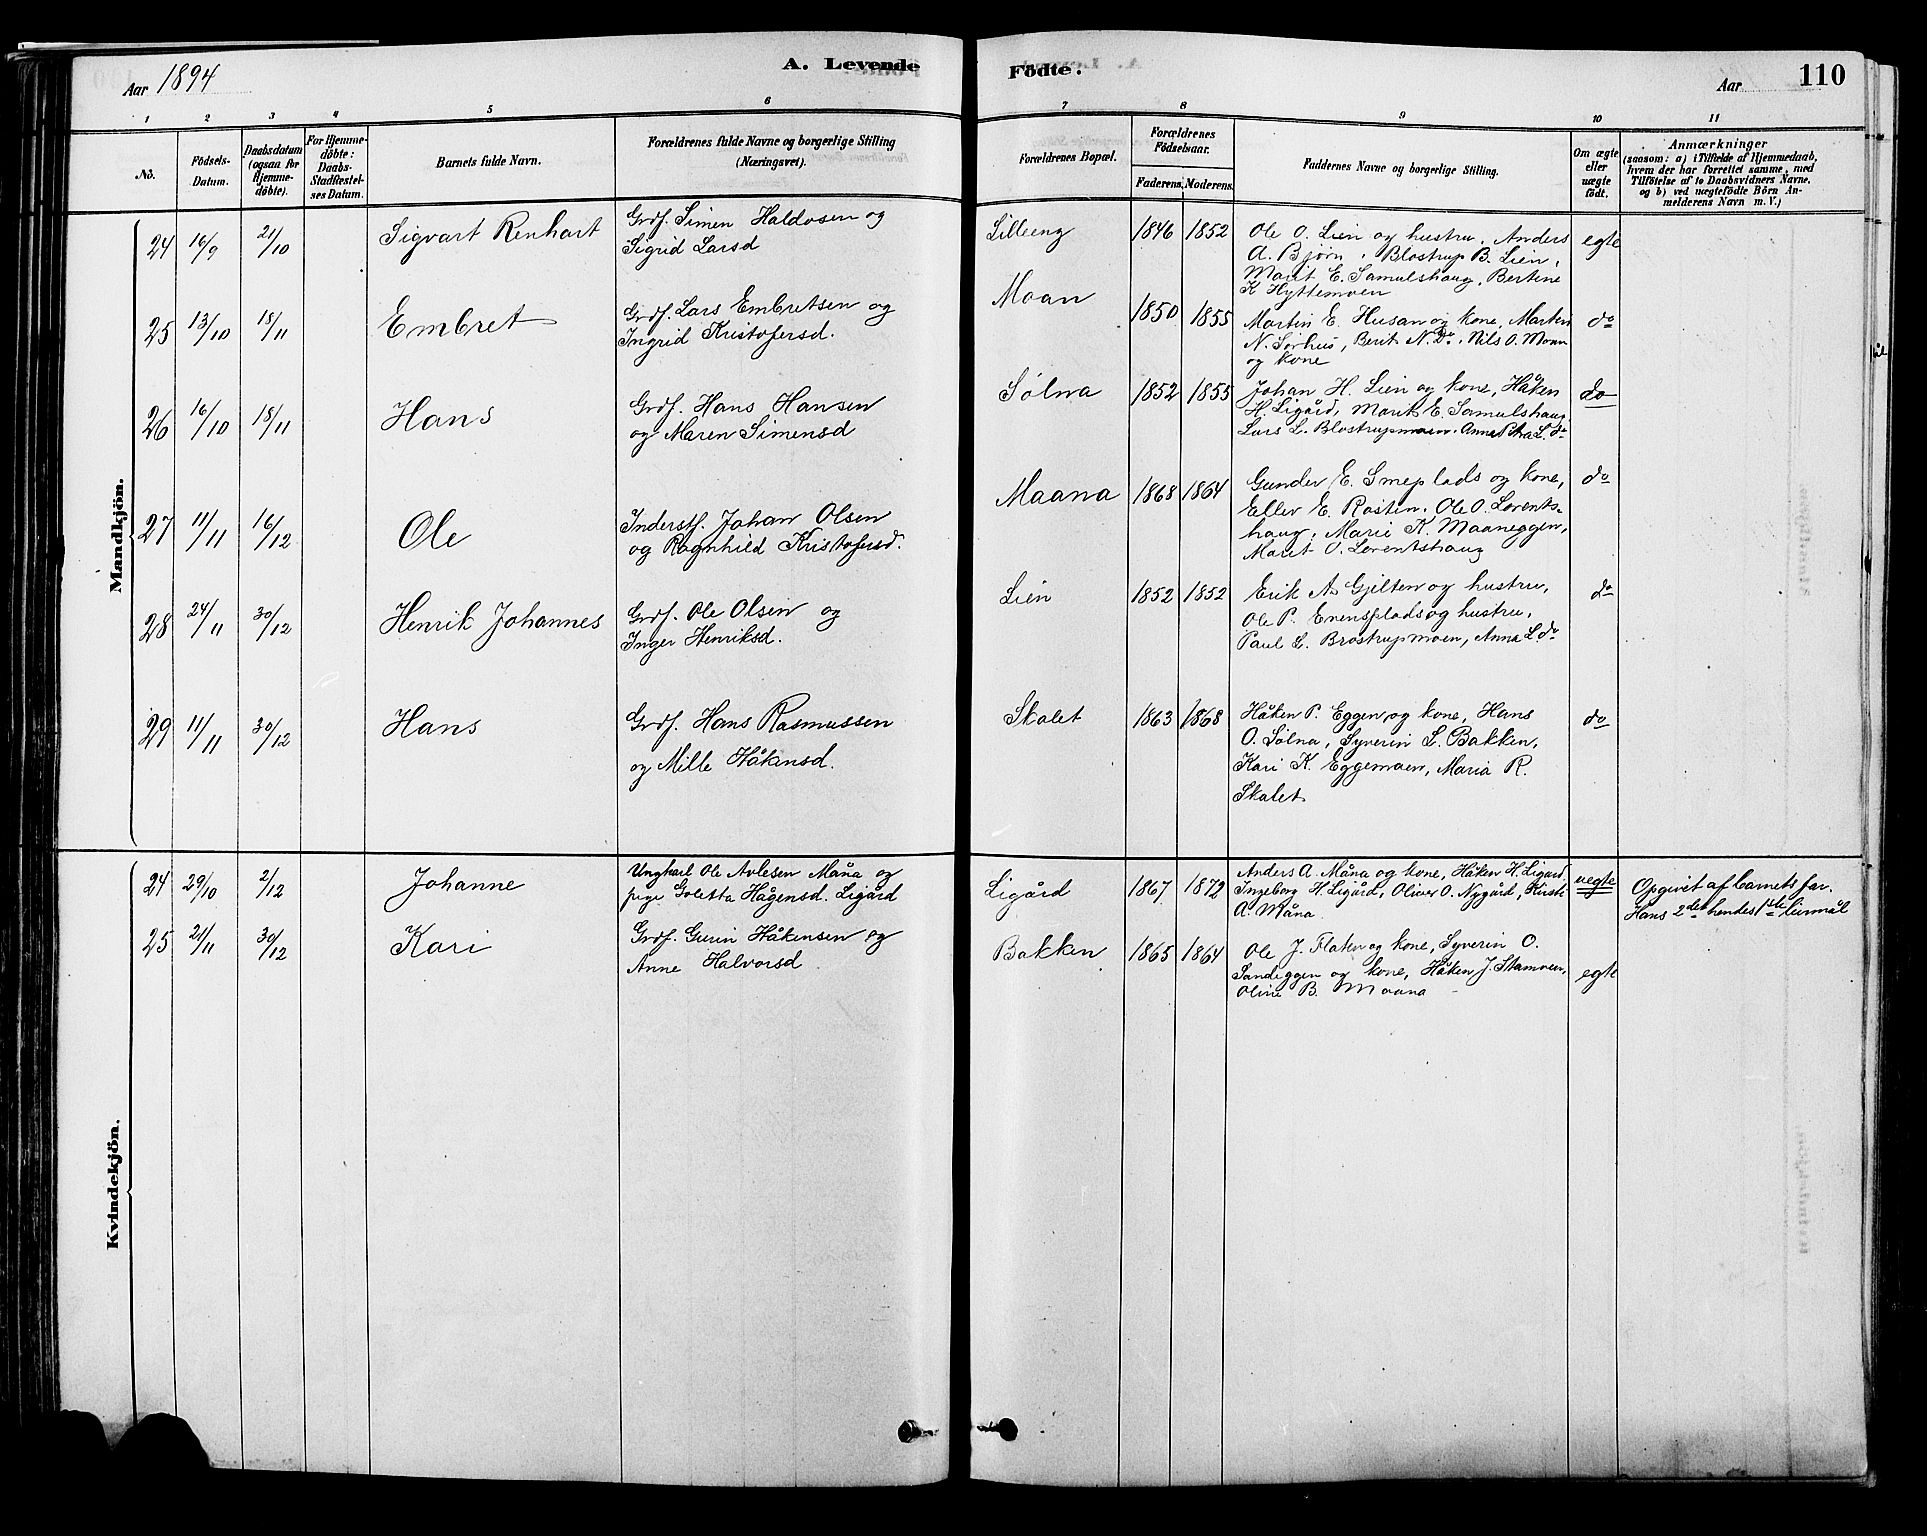 Aar 1894
A. Levende
Födte.
Aar
110
1 2 3 4 5 6 7 8 9 10 11
No.
Födsels-Datum.
Daabsdatum (ogsaa for Hjemme-döbte).
For Hjemme-döbte: Daabs-Stadfæstelses Datum.
Barnets fulde Navn.
Forældrenes fulde Navne og borgerlige Stilling (Næringsvei).
Forældrenes Bopæl.
Forældrenes Födselsaar.
Faderens. Moderens.
Faddernes Navne og borgerlige Stilling.
Om ægte eller uægte födt.
Anmærkninger
(saasom: a) i Tilfælde af Hjemmedaab,
hvem der har forrettet samme, med
Tilföielse af to Daabsvidners Navne,
og b) ved uægtefödte Börn An-
melderens Navn m. V.)
Mandkjön.
24 16/9 21/10 Sigvart Renhart
Grdf. Simen Haldosen og
Sigrid Larsd
Lilleeng 1846 1852
Ole O. Lien og hustru, Anders
A. Bjørn, Blostrup B. Lien,
Marit E. Samulshaug, Bertine
K Hyttemoen
egte
25 13/10 18/11 Embret
Grdf. Lars Embretsen og
Ingrid Kristofersd.
Moan 1850 1855
Martin E. Husan og kone, Marten
N. Sørhus, Berit N. Do, Nils O. Moan
og kone
do
26 16/10 18/11 Hans
Grdf. Hans Hansen
og Maren Simensd
Sølna 1852 1855
Johan H. Lien og kone, Håken
H. Ligård, Marit E. Samulshaug
Lars L. Blostrupmoen, Anne Petra L. do
do
27 11/11 16/12 Ole
Inderstf. Johan Olsen
og Ragnhild Kristofersd.
Maana 1868 1864
Gunder E. Smeplads og kone,
Eller E. Rosten, Ole O. Lorents-
haug, Marie K. Maaneggen,
Marit O. Lorentshaug
do
28 24/11 30/12 Henrik Johannes
Grdf. Ole Olsen og
Inger Henriksd.
Lien 1852 1852
Erik A. Gjelten og hustru,
Ole P. Enensplads og hustru,
Paul L. Brostrupmoen, Anna L. do
do
29 11/11 30/12 Hans
Grdf. Hans Rasmussen
og Mille Håkensd.
Skalet 1863 1868
Håken P. Eggen og kone, Hans
O. Sølna, Syverin L. Bakken,
Kari K. Eggemoen, Maria R.
Skalet
do
Kvindekjön.
24 29/10 2/12 Johanne
Ungkarl Ole Avlesen Måna og
pige Goletta Hågensd. Ligård
Ligård 1867 1872
Anders A. Måna og kone, Håken H. Ligard
Ingeborg H. Ligård, Oliver O. Nygård, Kirsti
A. Måna
uegte
Opgivet af barnets far.
Hans 2det hendes 1ste leiermål
25 21/11 30/12 Kari
Grdf. Gurin Håkensen og
Anne Halvorsd
Bakken 1865 1864
Ole J. Flaten og kone, Syverin O.
Sandeggen og kone, Håken J. Stamveen,
Oline B. Maana
egte